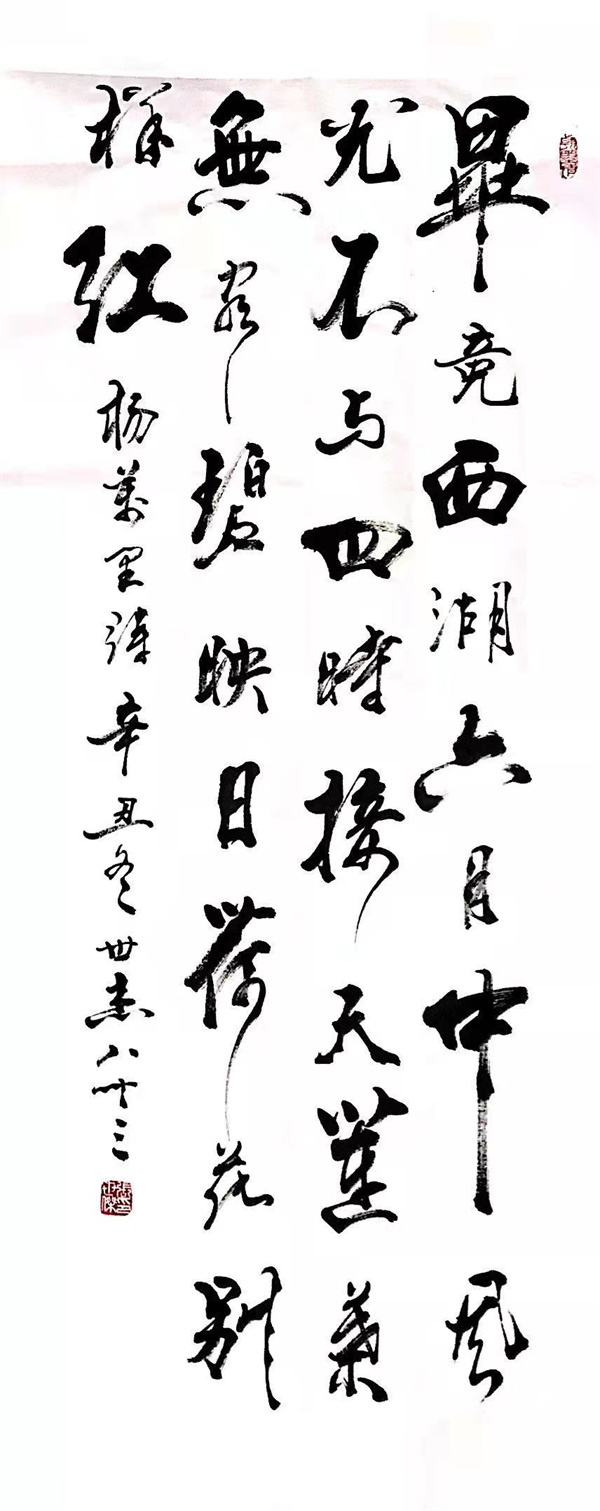 畢竟西湖六月中風
光不与四時接天蓮葉
無窮碧映日荷花別
樣紅
楊萬里詩辛丑冬世杰八十三